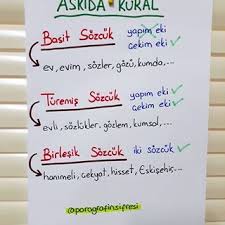 ASKIDA KURAL
Basit Sözcük yapım eki
çekim eki ✓
ev, evim, sözler, gözü, kumda,...
Türemiş Sözcük yapım eki ✓
çekim eki ✓
evli, sözlükler, gözlem, kumsal,...
Birleşik Sözcük iki sözcük ✓
hanımeli, çekyat, hisset, Eskişehir,...
@paragrafinsifresi